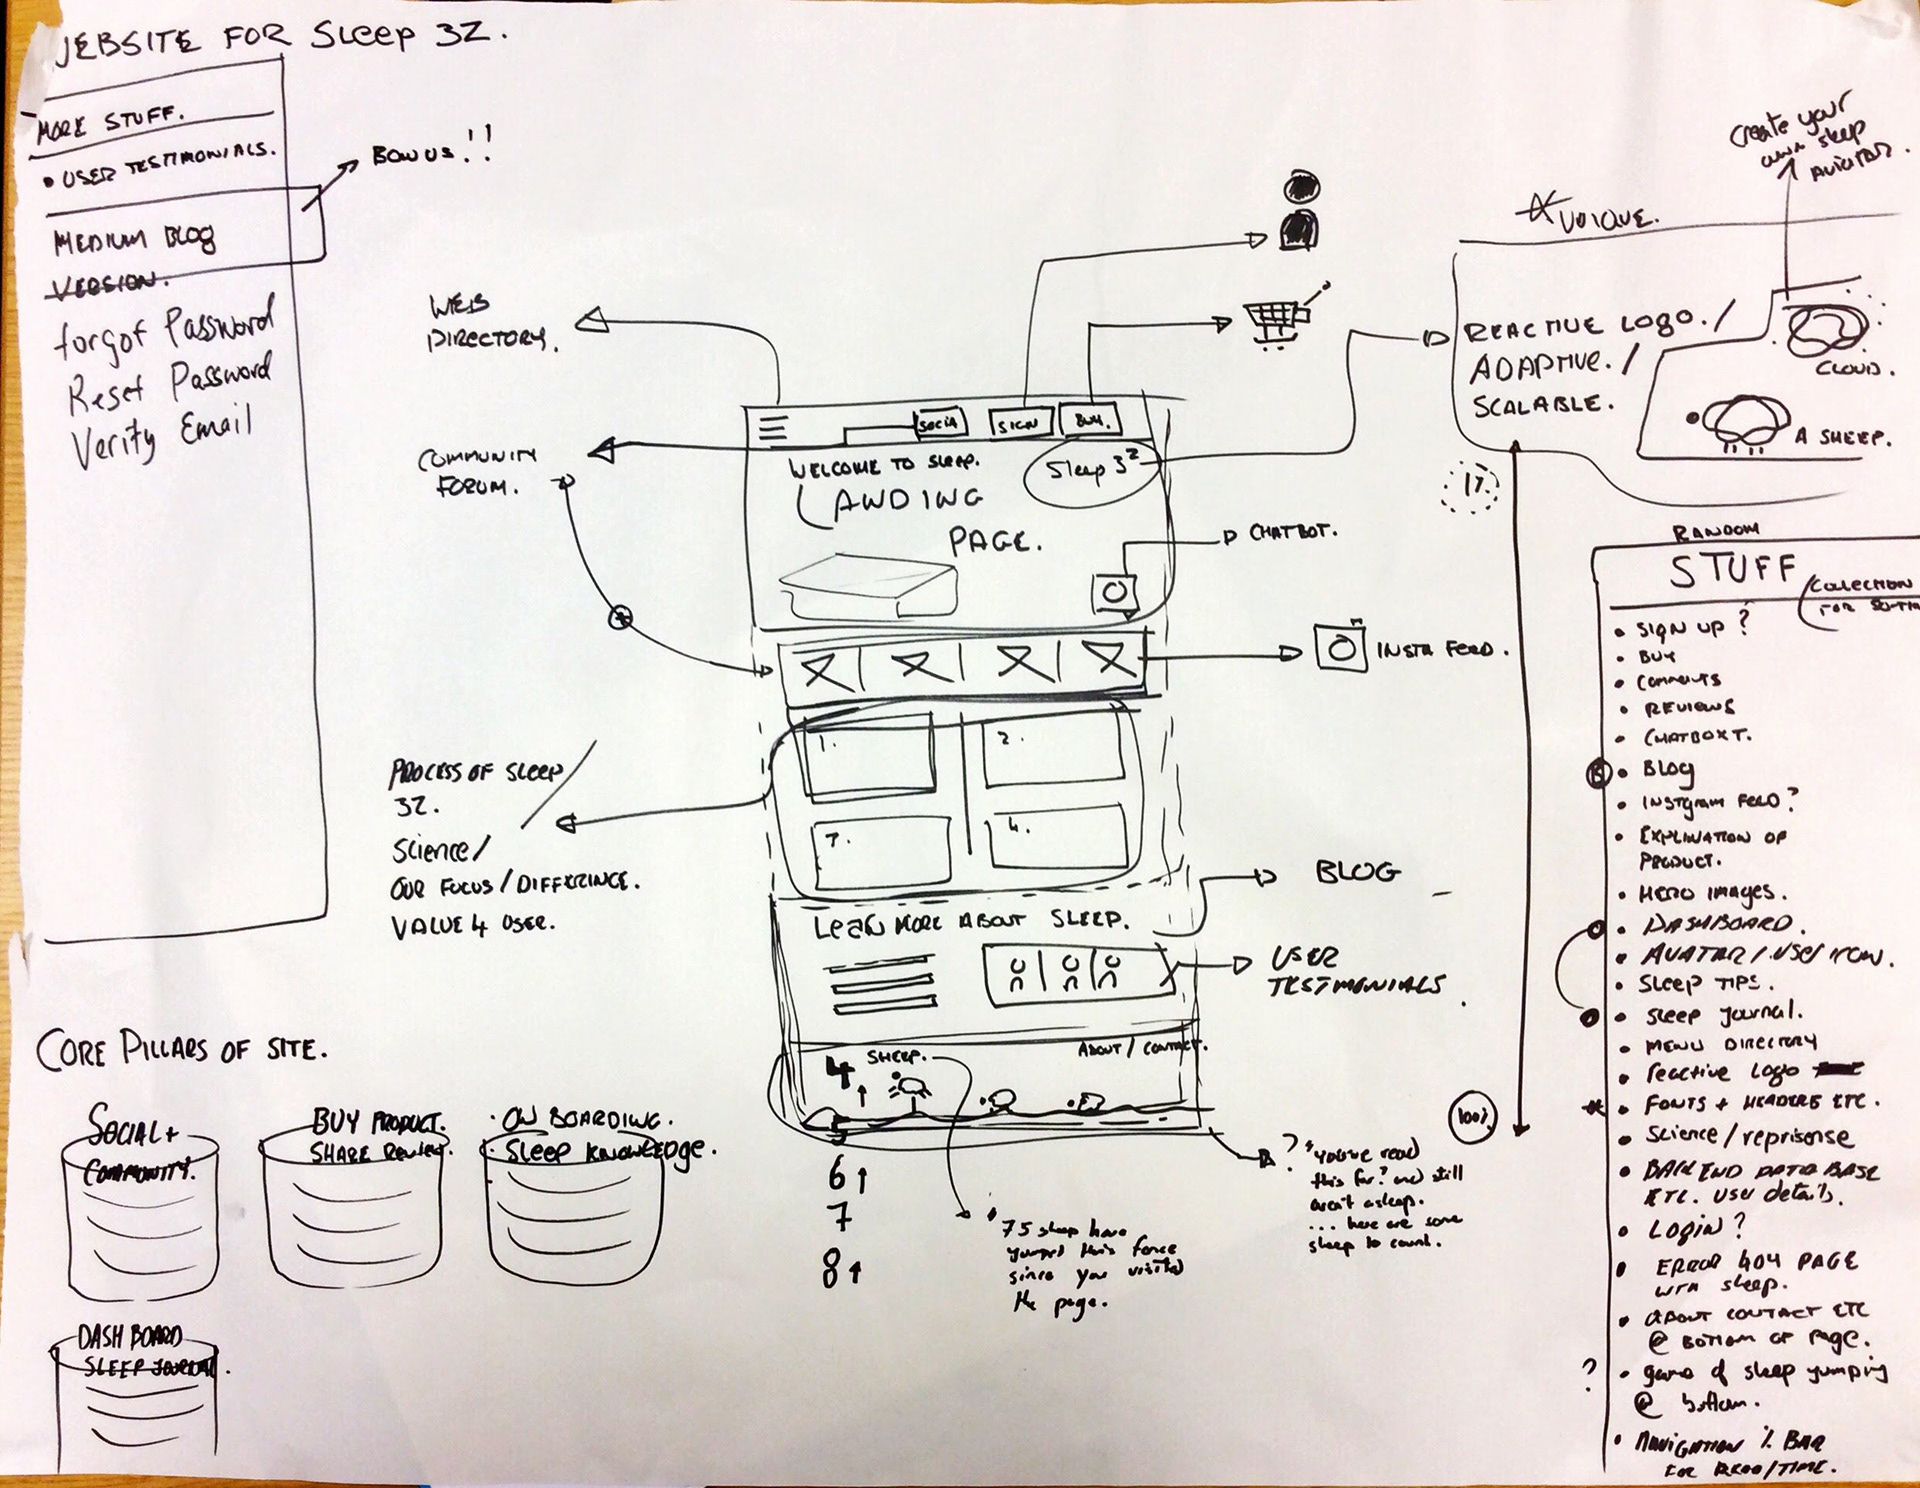 JEBSITE FOR SLEEP 3Z.
MORE STUFF.
• USER TESTIMONIALS.
BONUS!!
MEDIUM BLOG
VERSION.
forgot Password
Reset Password
Verify Email
WEB
DIRECTORY.
COMMUNITY
FORUM.
PROCESS OF SLEEP
3Z.
SCIENCE/
OUR FOCUS/DIFFERENCE.
VALUE 4 USER.
SIGN
BUY.
WELCOME TO SLEEP.
Sleep 3²
LANDING
PAGE.
CHATBOT.
INSTA FEED.
1.
2.
4.
BLOG
LEARN MORE ABOUT SLEEP.
USER
TESTIMONIALS.
SHEEP.
ABOUT / CONTACT.
4↑
5
6↑
7
8↑
"75 sheep have
jumped this fence
since you visited
the page.
? "you've read
this far? and still
aren't asleep.
... here are some
sheep to count.
create your
own sleep
UNIQUE.
REACTIVE LOGO. /
ADAPTIVE. /
SCALABLE.
CLOUD.
A SHEEP.
100%
RANDOM
STUFF
COLLECTION
• SIGN UP?
• BUY
• COMMENTS
• REVIEWS
• BLOG
• INSTGRAM FEED?
• EXPLINATION OF
PRODUCT.
• HERO IMAGES.
• DASHBOARD.
• AVATAR / USER ICON.
• SLEEP TIPS.
• SLEEP JOURNAL.
• MENU DIRECTORY
• reactive Logo
• FONTS + HEADERS ETC.
• SCIENCE/
• BACK END DATA BASE
ETC. USER details.
• LOGIN?
• ERROR 404 PAGE
WITH SHEEP.
• ABOUT CONTACT ETC
@ BOTTOM OF PAGE.
? • game of sheep jumping
@ bottom.
• NAVIGATION % BAR
FOR READ/TIME.
CORE PILLARS OF SITE.
SOCIAL +
COMMUNITY.
BUY PRODUCT.
SHARE REVIEW.
• ON BOARDING.
• SLEEP KNOWLEDGE.
DASHBOARD
SLEEP JOURNAL.